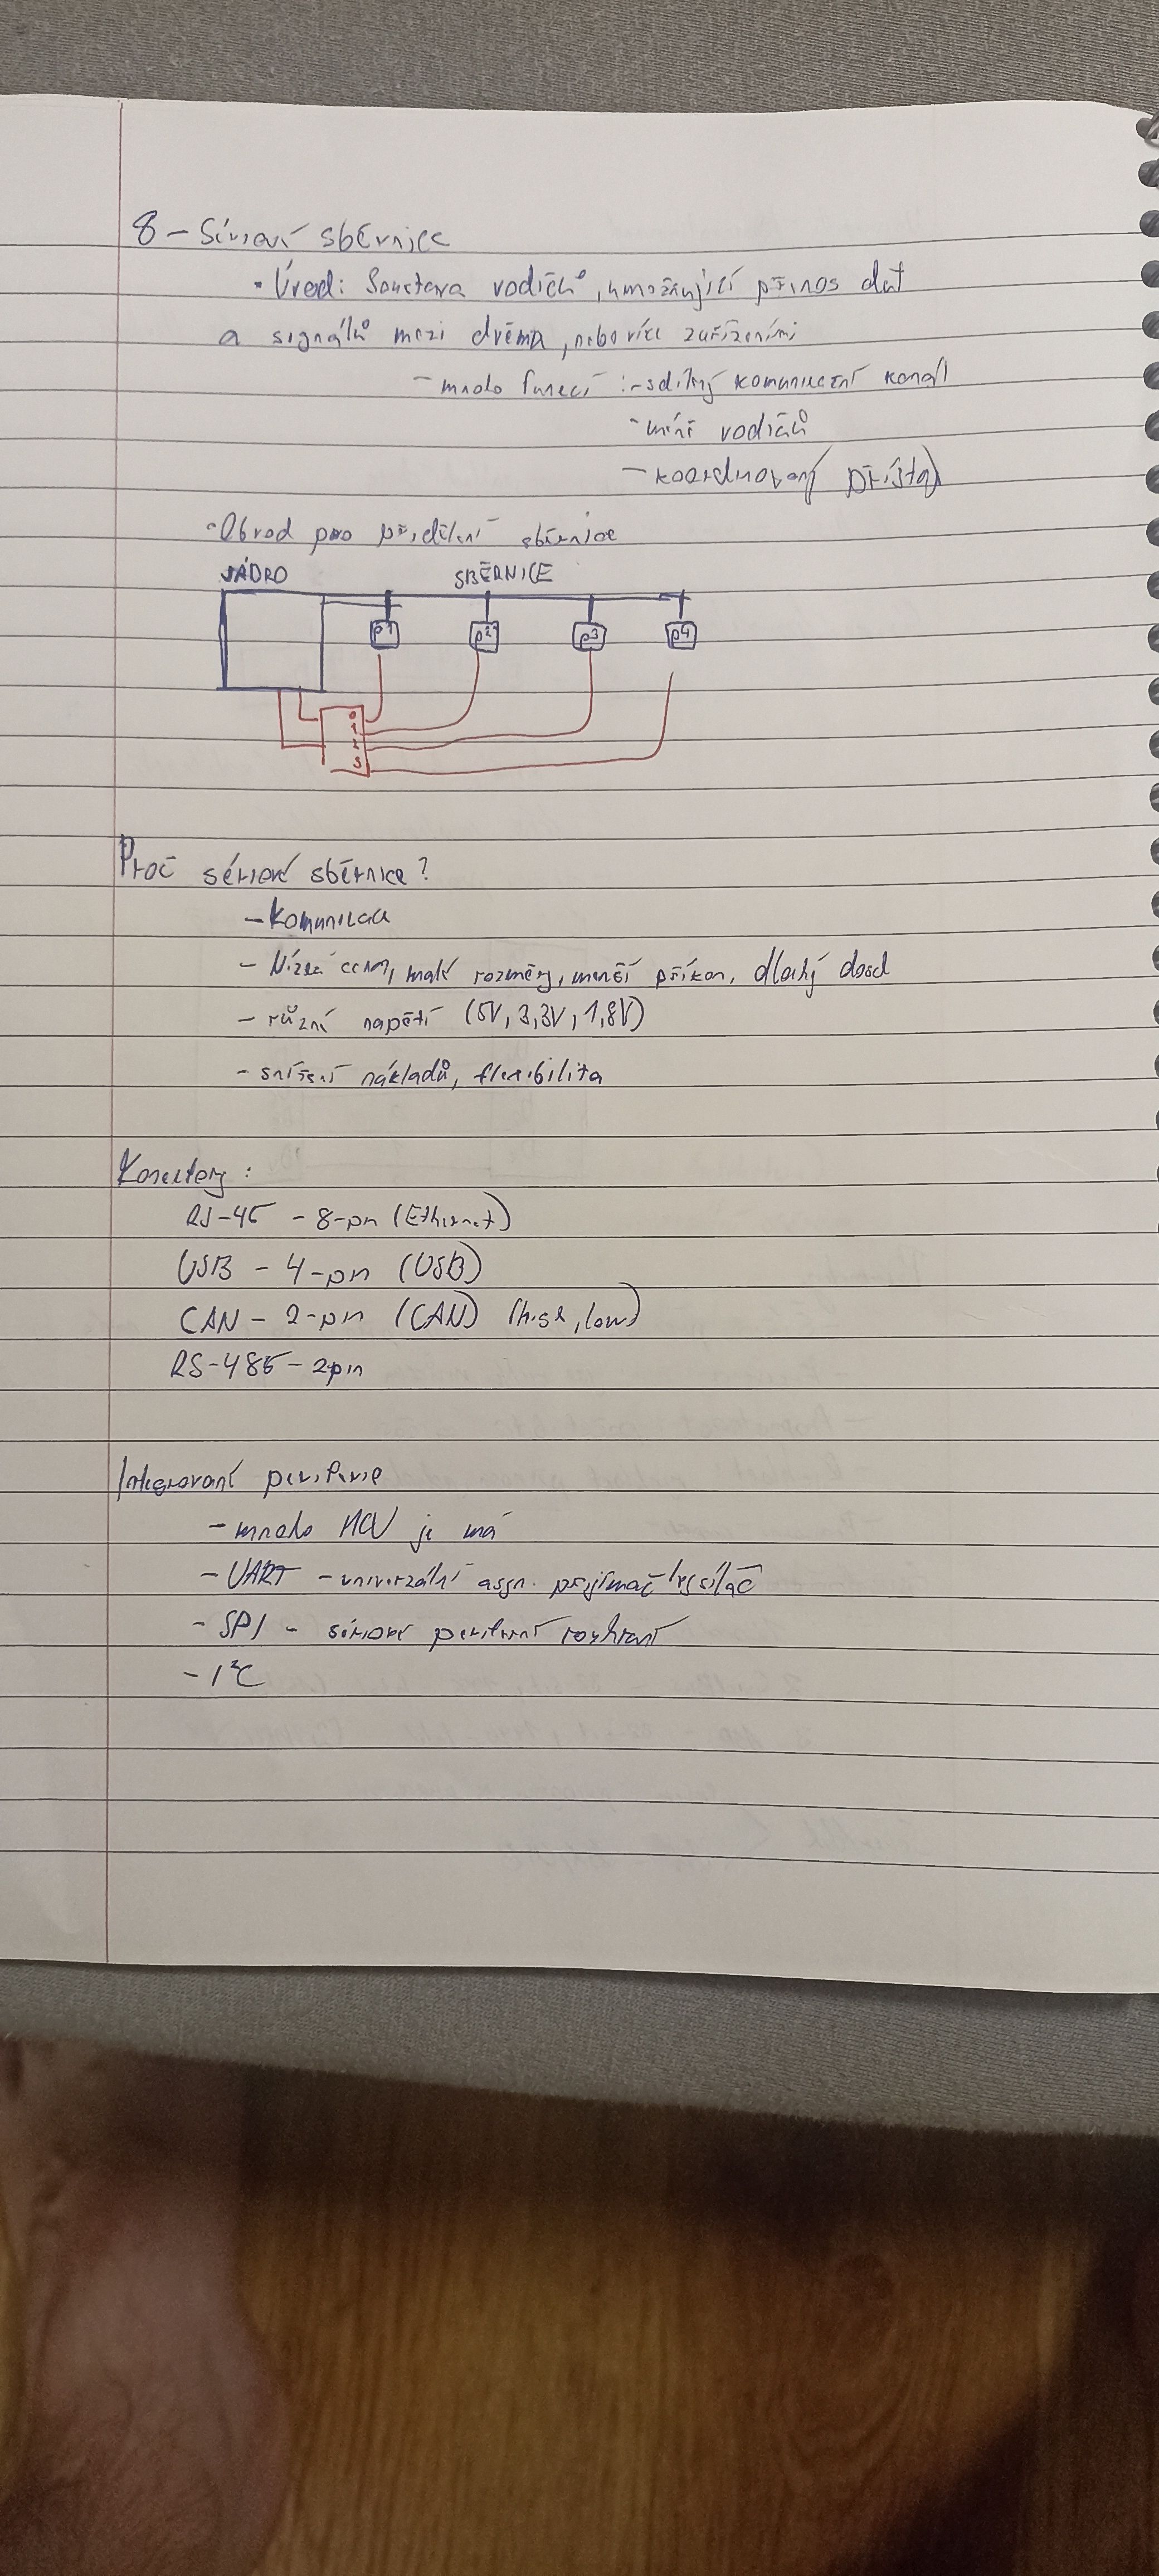 8 - Sériové sběrnice
• Úvod: Soustava vodičů, umožňující přenos dat
a signálů mezi dvěma, nebo více zařízeními
- mnoho funkcí :- sdílený komunikační kanál
- míň vodičů
- koordinovaný přístup
• Obvod pro přidělení sběrnice
JÁDRO SBĚRNICE
P1 P2 P3 P4
0
1
2
3
Proč sériové sběrnice?
- Komunikace
- Nízká cena, malé rozměry, menší příkon, dlouhý dosah
- různí napětí (5V, 3,3V, 1,8V)
- snížení nákladů, flexibilita
Konektory:
RJ-45 - 8-pin (Ethernet)
USB - 4-pin (USB)
CAN - 2-pin (CAN) (high, low)
RS-485 - 2pin
Integrované periferie
- mnoho MCU je má
- UART - univerzální asyn. přijímač/vysílač
- SPI - sériové periferní rozhraní
- I²C